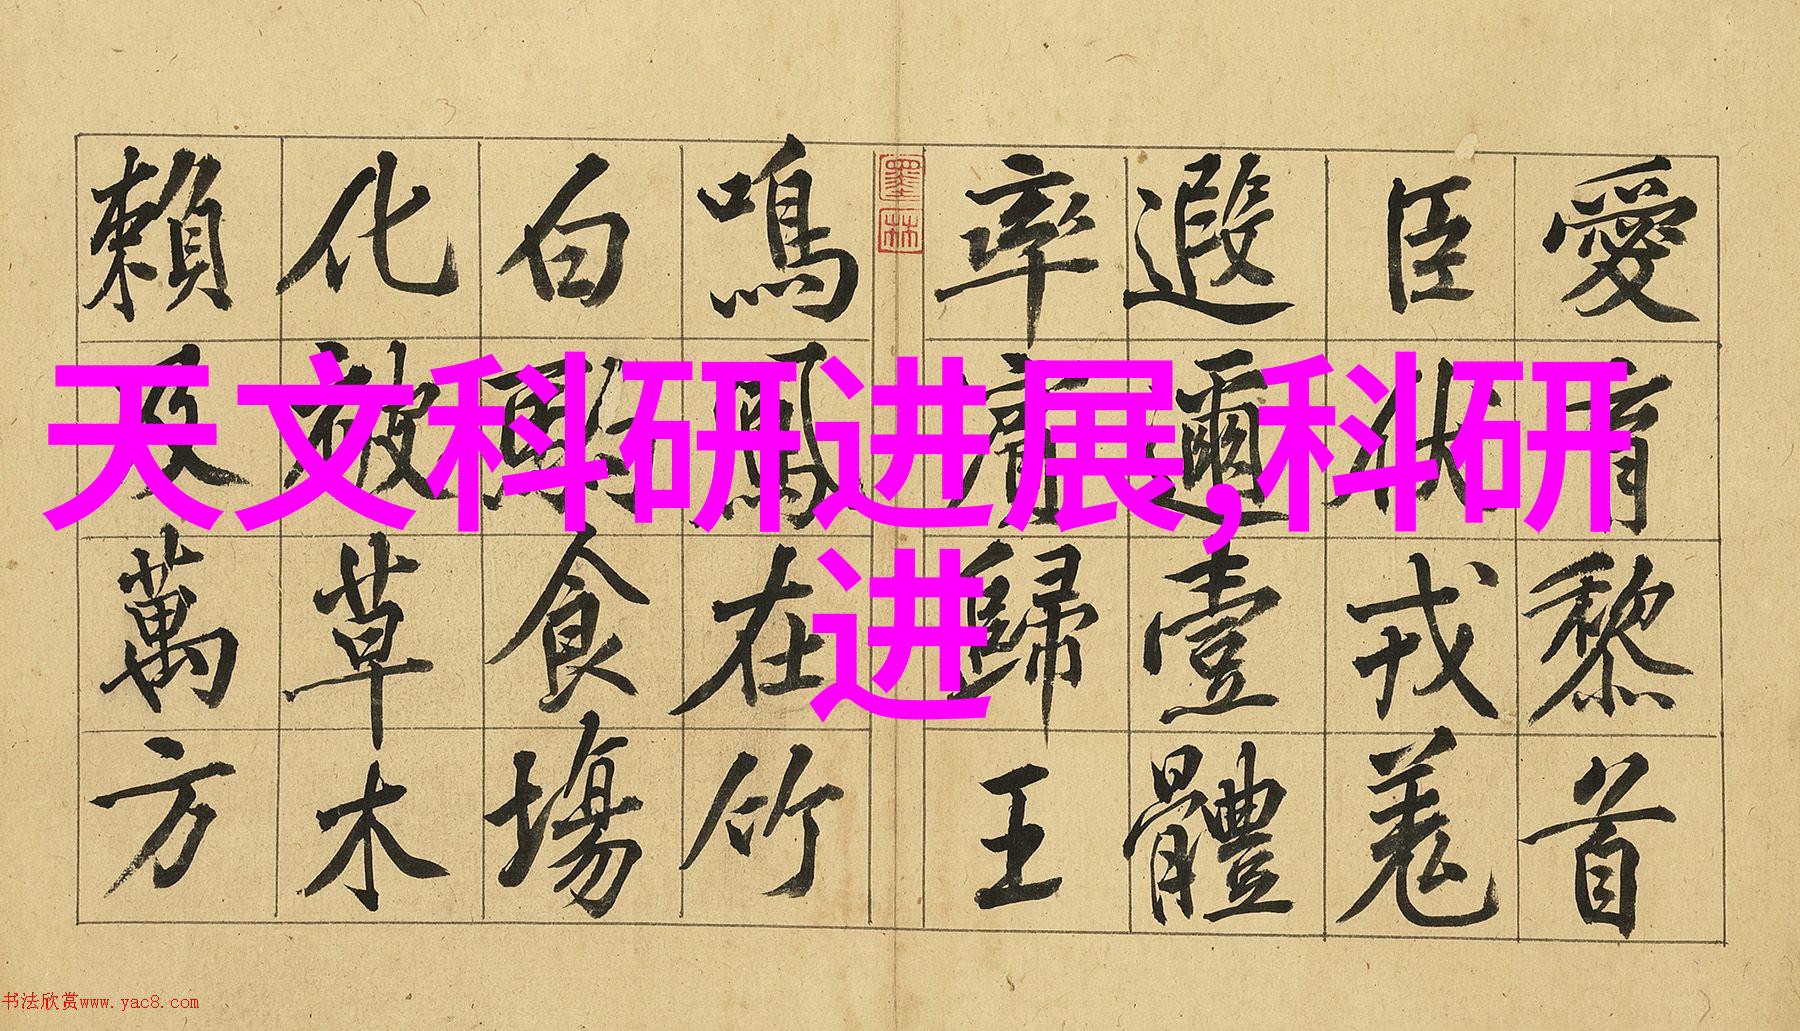 愛育黎首
臣伏戎羌
遐邇壹體
率賓歸王
墨林
鳴鳳在竹
白駒食場
化被草木
賴及萬方
天文科研进展,科研
进
书法欣赏www.yac8.com